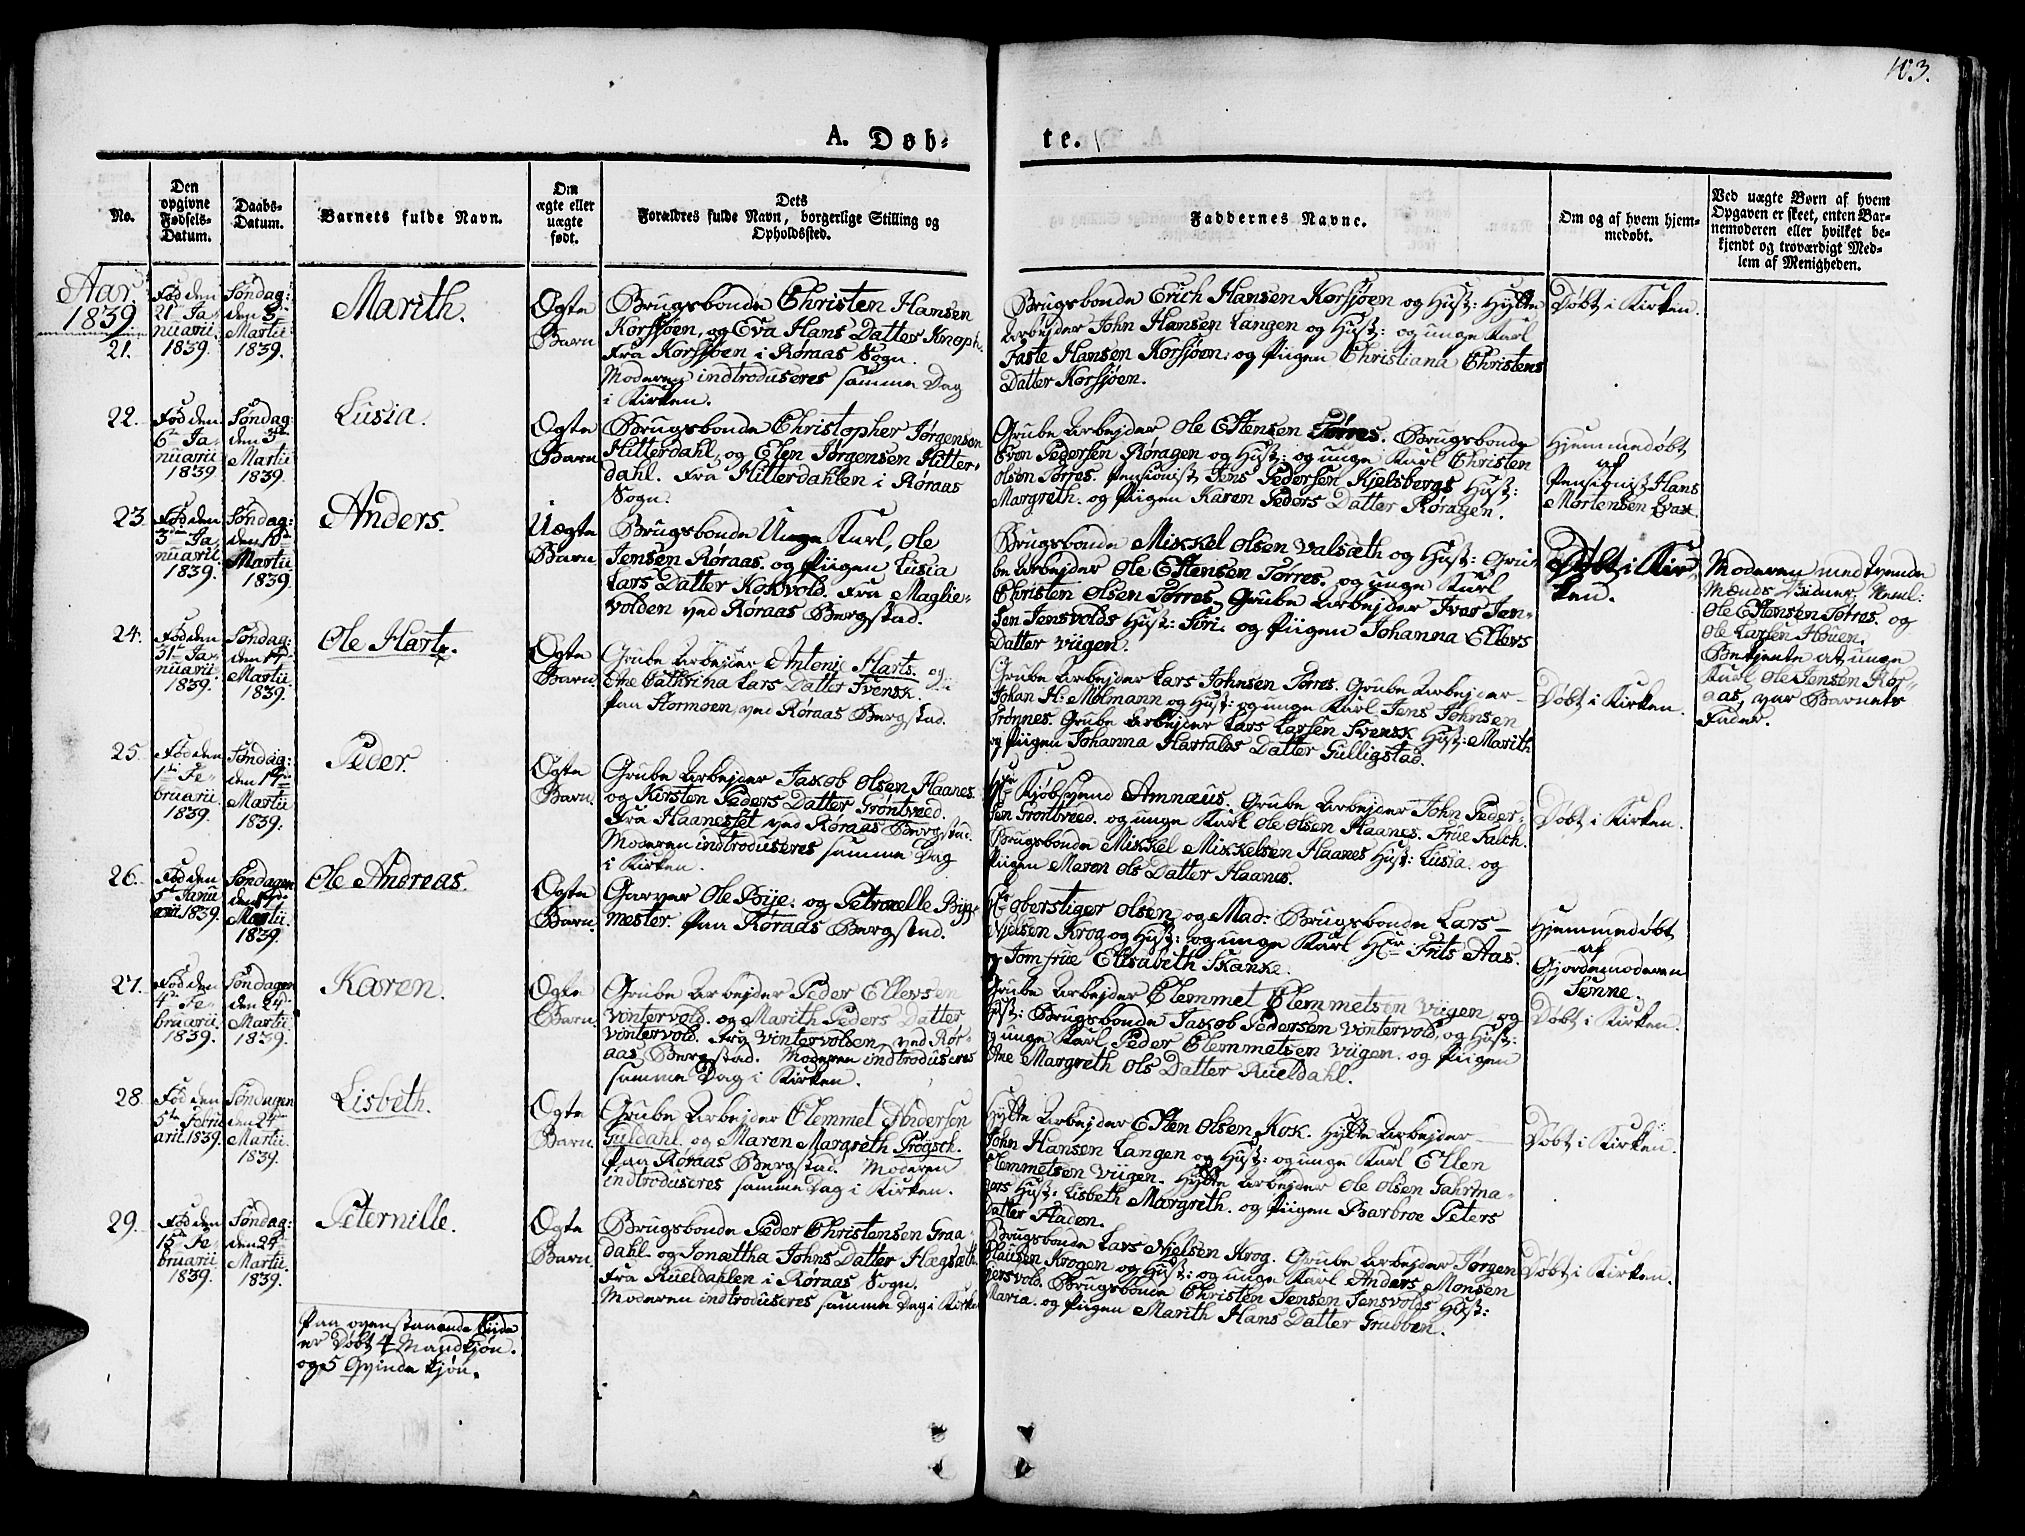 103.
A. Døb-
te.
No.
Den
opgivne
Fødsels-
Datum.
Daabs-
Datum.
Barnets fulde Navn.
Om
ægte eller
uægte
født.
Dets
Forældres fulde Navn, borgerlige Stilling og
Opholdssted.
Faddernes Navne.
Om og af hvem hjem-
medøbt.
Ved uægte Børn af hvem
Opgaven er skeet, enten Bar-
nemoderen eller hvilket be-
kjendt og troværdigt Med-
lem af Menigheden.
Aar
1839
21.
Fød den
21 Ja-
nuarii
1839.
Søndag:
den 3de
Martii
1839.
Marith.
Ögte
Barn
Brugsbonde Christen Hansen
Korssjøen, og Eva Hans Datter Knoph.
Fra Korssjøen i Røraas Sogn.
Moderen indtroduseres samme Dag
i Kirken.
Brugsbonde Erich Hansen Korssjøen og Hust: Hytte
Arbejder John Hansen Langen og Hust: og unge Karl
Faste Hansen Korsjøen: og Piigen Christiana Christens
Datter Korsjøen.
Døbt i Kirken.
22.
Fød den
6te Ja-
nuarii
1839.
Søndag
den 3de
Martii
1839.
Lusia.
Ögte
Barn
Brugsbonde Christopher Jørgensen
Hitterdahl, og Elen Jørgensen Hitter-
dahl. Fra Hitterdahlen i Røraas
Sogn.
Grube Arbejder Ole Estensen Tørres. Brugsbonde
Sven Pedersen Røragen og Hust: og unge Karl Christen
Olsen Tørres. Pensionist Jens Pedersen Kjelsbergs Hust:
Margreth. og Piigen Karen Peders Datter Røragen.
Hjemmedøbt
af
Pensionist Hans
Mortensen Evax
23.
Fød den
3die Ja-
nuarii
1839.
Søndag:
den 10de
Martii
1839.
Anders.
Uægte
Barn
Brugsbonde Unge Karl, Ole
Jensen Røraas. og Piigen Lusia
Lars Datter Kokvold. Fra Maglie-
volden ved Røraas Bergstad.
Brugsbonde Mikkel Olsen Valsæth og Hust: Gru-
be Arbejder Ole Estensen Tørres. og unge Karl
Christen Olsen Tørres. Grube Arbejder Ivar Jen-
sen Jensvolds Hust: Siri. og Piigen Johanna Ellevs
Datter Viigen.
Døbt i Kir-
ken.
Moderen med tvende
Mænds Vidner. Neml:
Ole Estensen Tørres. og
Ole Larsen Houen.
Bekjente at unge
Karl Ole Jensen Rør-
aas, var Barnets
Fader.
24.
Fød den
31te Ja-
nuarii
1839.
Søndag:
den 17de
Martii
1839.
Ole Harts.
Ögte
Barn.
Grube Arbejder Antoni Harts. og
Ane Cathrina Lars Datter Svensk.
Paa Stormoen, ved Røraas Bergstad.
Grube Arbejder Lars Johnsen Tørres. Grube Arbejder
Johan H: Molmann og Hust: og unge Karl Jens Johnsen
Trønnes. Grube Arbejder Lars Larsen Svensk Hust: Marith
og Piigen Johanna Harralds Datter Gulligstad.
Døbt i Kirken.
25.
Fød den
1te Fe-
bruarii
1839.
Søndag:
den 17de
Martii
1839.
Peder.
Ögte
Barn.
Grube Arbejder Jakob Olsen Haanes.
og Kirsten Peders Datter Grøntveed.
Fra Haanesset ved Røraas Bergstad.
Moderen indtroduseres samme Dag
i Kirken.
Hr Kjøbsvend Amnæus. Grube Arbejder John Peder-
sen Grøntveed. og unge Karl Ole Olsen Haanes. Frue Falch.
Brugsbonde Mikkel Mikkelsen Haanes Hust: Lusia. og
Piigen Maren Ols Datter Haanes.
Døbt i Kirken.
26.
Fød den
5te Janu
arii 1839.
Søndagen
den 17de
Martii
1839.
Ole Andreas.
Ögte
Barn.
Garver Ole Bye. og Petronelle Big-
mester. Paa Røraas Bergstad.
Hr Oberstiger Olsen og Mad: Brugsbonde Lars
Nielsen Krog og Hust: og unge Karl Hr Frits Aas.
og Jomfrue Elisabeth Skanke.
Hjemmedøbt
af
Gjordemoderen
Sønne.
27.
Fød den
4te Fe-
bruarii
1839.
Søndagen
den 24de
Martii
1839.
Karen.
Ögte
Barn.
Grube Arbejder Peder Ellevsen
Vintervold. og Marith Peders Datter
Vintervold. Fra Vintervolden, ved Rør-
aas Bergstad. Moderen indtroduseres
samme Dag i Kirken.
Grube Arbejder Clemmet Clemmetsen Viigen, og
Hust: Brugsbonde Jakob Pedersen Vintervold, og Hust:
og unge Karl Peder Clemmetsen Viigen. og Piigen
Ane Margreth Ols Datter Rueldahl.
Døbt i Kirken.
28.
Fød den
5te Febru
arii. 1839.
Søndagen
den 24de
Martii.
1839.
Lisbeth.
Ögte
Barn.
Grube Arbejder Clemmel Andersen
Guldahl. og Maren Margreth Prøgsch.
Paa Røraas Bergstad. Moderen
indtroduseres samme Dag i Kirken.
Hytte Arbejder Esten Olsen Kok. Hytte Arbejder
John Hansen Langen og Hust: og unge Karl Ellen
Clemmetsen Viigen. Hytte Arbejder Ole Olsen Gahrma-
gers Hust: Lisbeth Margreth. og Piigen Barbroe Peters
Datter Stadon.
Døbt i Kirken.
29.
Fød den
15de Fe-
bruarii
1839.
Søndag:
den 24de
Martii.
1839.
Peternille.
Ögte
Barn.
Brugsbonde Peder Christensen Graa-
dahl. og Jonættha Johns Datter Hægsæth.
Fra Rueldahlen i Røraas Sogn.
Moderen indtroduseres samme Dag i Kirken
Brugsbonde Lars Nielsen Krog. Grube Arbejder Jørgen
Clausen Krogen og Hust: og unge Karl Anders Monsen
Gersvold. Brugsbonde Christen Jensen Jensvolds Hust:
Maria. og Piigen Marith Hans Datter Grubben.
Døbt i Kirken.
Paa ovenstaaende Siide
er Døbt 4 Mandkjøn.
og 5 Qvindekjøn.